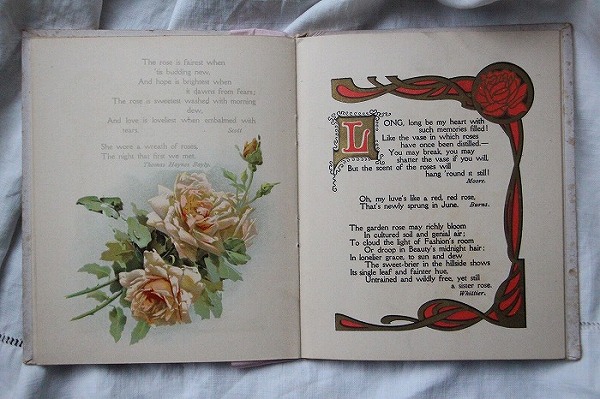 The rose is fairest when
'tis budding new,
And hope is brightest when
it dawns from fears;
The rose is sweetest washed with morning
dew,
And love is loveliest when embalmed with
tears. Scott.
She wore a wreath of roses,
The night that first we met.
Thomas Haynes Bayly.
LONG, long be my heart with
such memories filled!
Like the vase in which roses
have once been distilled.—
You may break, you may
shatter the vase if you will,
But the scent of the roses will
hang 'round it still!
Moore.
Oh, my luve's like a red, red rose,
That's newly sprung in June. Burns.
The garden rose may richly bloom
In cultured soil and genial air;
To cloud the light of Fashion's room
Or droop in Beauty's midnight hair;
In lonelier grace, to sun and dew
The sweet-brier in the hillside shows
Its single leaf and fainter hue,
Untrained and wildly free, yet still
a sister rose.
Whittier.